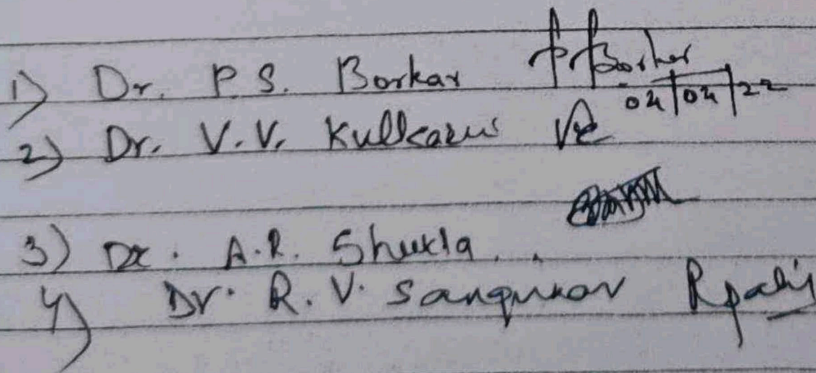 1) Dr. P.S. Borkar P Borkar
04/04/22
2) Dr. V.V. Kulkarni
3) Dr. A.R. Shukla
4) Dr. R.V.